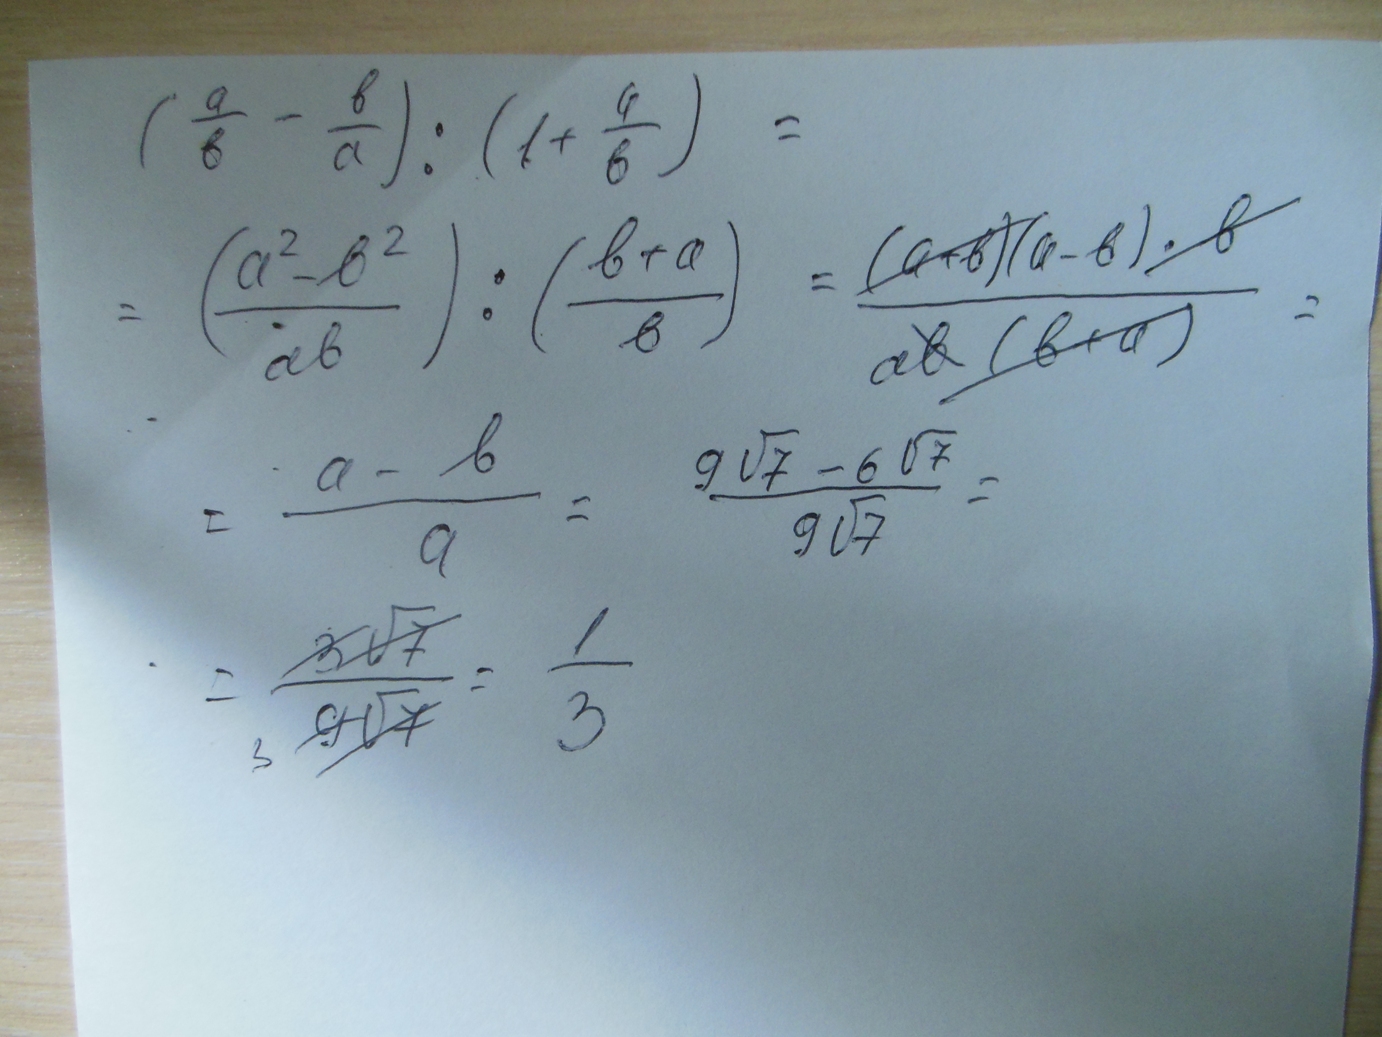 (a/b - b/a) : (1 + a/b) =
= ((a² - b²)/ab) : ((b + a)/b) = (a+b)(a-b) · b / ab(b+a) =
= (a - b)/a = (9√7 - 6√7)/9√7 =
= 3√7/9√7 3 = 1/3